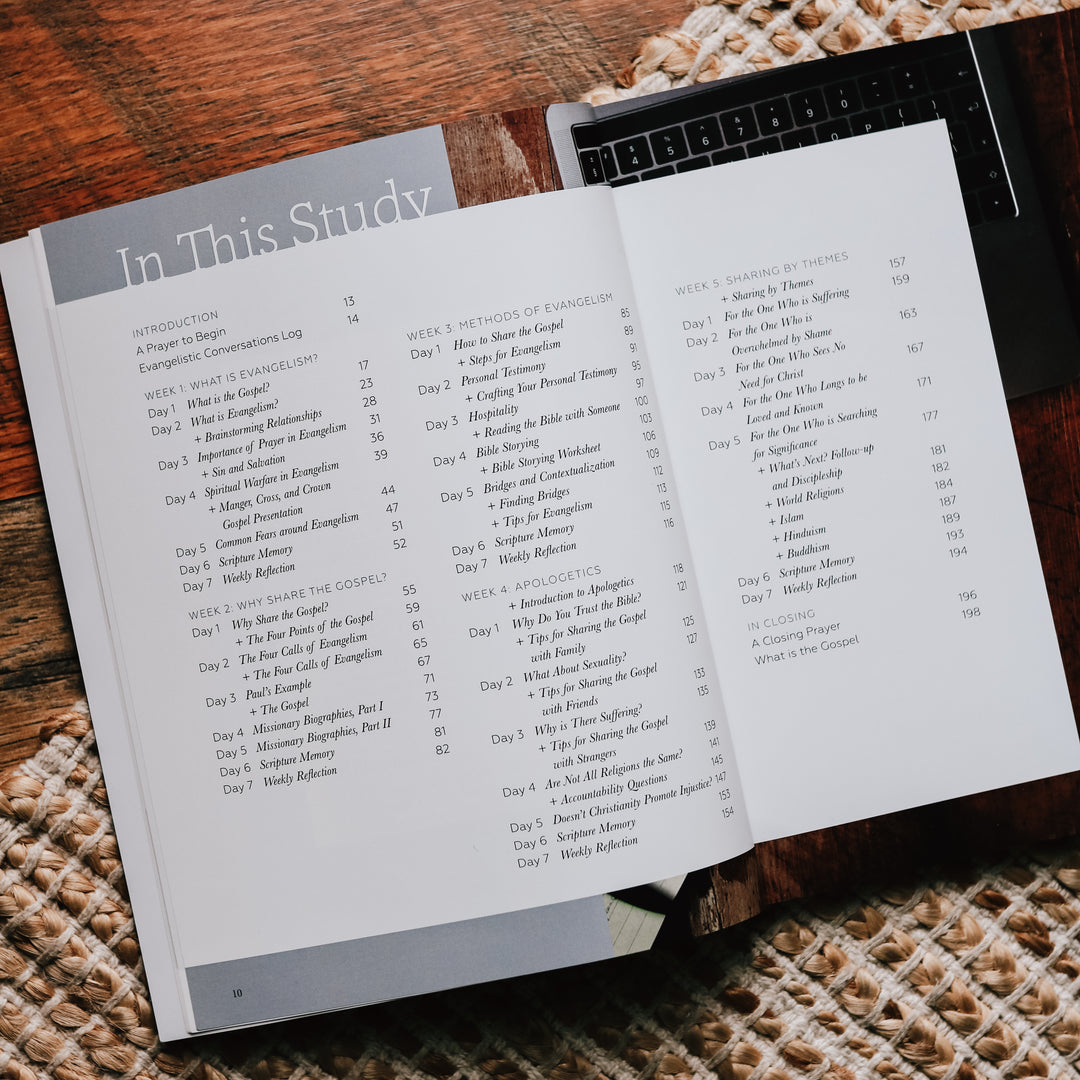 In This Study
INTRODUCTION
A Prayer to Begin 13
Evangelistic Conversations Log 14
WEEK 1: WHAT IS EVANGELISM?
Day 1 What is the Gospel? 17
Day 2 What is Evangelism? 23
+ Brainstorming Relationships 28
Day 3 Importance of Prayer in Evangelism 31
+ Sin and Salvation 36
Day 4 Spiritual Warfare in Evangelism 39
+ Manger, Cross, and Crown
Gospel Presentation 44
Day 5 Common Fears around Evangelism 47
Day 6 Scripture Memory 51
Day 7 Weekly Reflection 52
WEEK 2: WHY SHARE THE GOSPEL?
Day 1 Why Share the Gospel? 55
+ The Four Points of the Gospel 59
Day 2 The Four Calls of Evangelism 61
+ The Four Calls of Evangelism 65
Day 3 Paul's Example 67
+ The Gospel 71
Day 4 Missionary Biographies, Part I 73
Day 5 Missionary Biographies, Part II 77
Day 6 Scripture Memory 81
Day 7 Weekly Reflection 82
WEEK 3: METHODS OF EVANGELISM
Day 1 How to Share the Gospel 85
+ Steps for Evangelism 89
Day 2 Personal Testimony 91
+ Crafting Your Personal Testimony 95
Day 3 Hospitality 97
+ Reading the Bible with Someone 100
Day 4 Bible Storying 103
+ Bible Storying Worksheet 106
Day 5 Bridges and Contextualization 109
+ Finding Bridges 112
+ Tips for Evangelism 113
Day 6 Scripture Memory 115
Day 7 Weekly Reflection 116
WEEK 4: APOLOGETICS
+ Introduction to Apologetics 118
Day 1 Why Do You Trust the Bible? 121
+ Tips for Sharing the Gospel
with Family 125
Day 2 What About Sexuality? 127
+ Tips for Sharing the Gospel
with Friends 133
Day 3 Why is There Suffering? 135
+ Tips for Sharing the Gospel
with Strangers 139
Day 4 Are Not All Religions the Same? 141
+ Accountability Questions 145
Day 5 Doesn't Christianity Promote Injustice? 147
Day 6 Scripture Memory 153
Day 7 Weekly Reflection 154
WEEK 5: SHARING BY THEMES
+ Sharing by Themes 157
Day 1 For the One Who is Suffering 159
Day 2 For the One Who is
Overwhelmed by Shame 163
Day 3 For the One Who Sees No
Need for Christ 167
Day 4 For the One Who Longs to be
Loved and Known 171
Day 5 For the One Who is Searching
for Significance 177
+ What's Next? Follow-up
and Discipleship 181
+ World Religions 182
+ Islam 184
+ Hinduism 187
+ Buddhism 189
Day 6 Scripture Memory 193
Day 7 Weekly Reflection 194
IN CLOSING
A Closing Prayer 196
What is the Gospel 198
10
4 5 6 7 8 9 0
O P